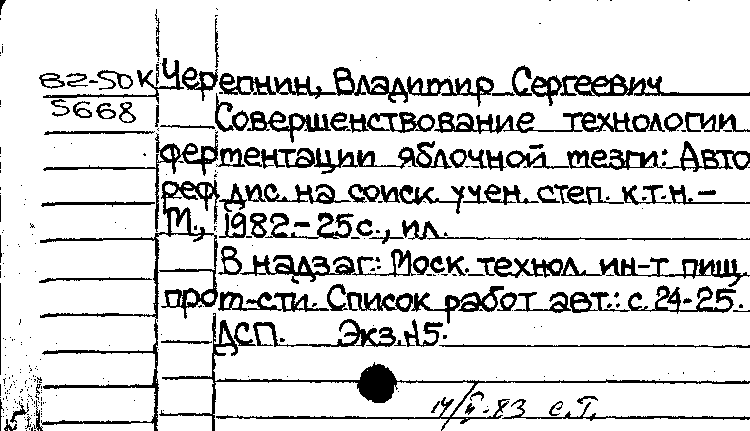 82-50к Черепнин, Владимир Сергеевич
5668 Совершенствование технологии
ферментации яблочной мезги: Авто
реф. дис. на соиск. учен. степ. к.т.н.-
М., 1982.-25с., ил.
В надзаг.: Моск. технол. ин-т пищ.
пром-сти. Список работ авт.: с. 24-25.
ДСП. Экз.N5.
14/II-83 с.т.